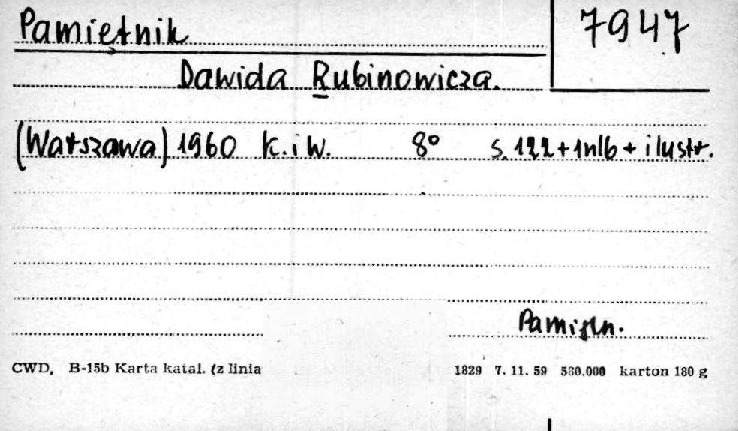 Pamiętnik
7947
Dawida Rubinowicza.
(Warszawa) 1960 K.iW. 8° s. 122+1nlb+ilustr.
Pamiętn.
CWD, B-15b Karta katal. (z linia 1829 7. 11. 59 580.000 karton 180 g